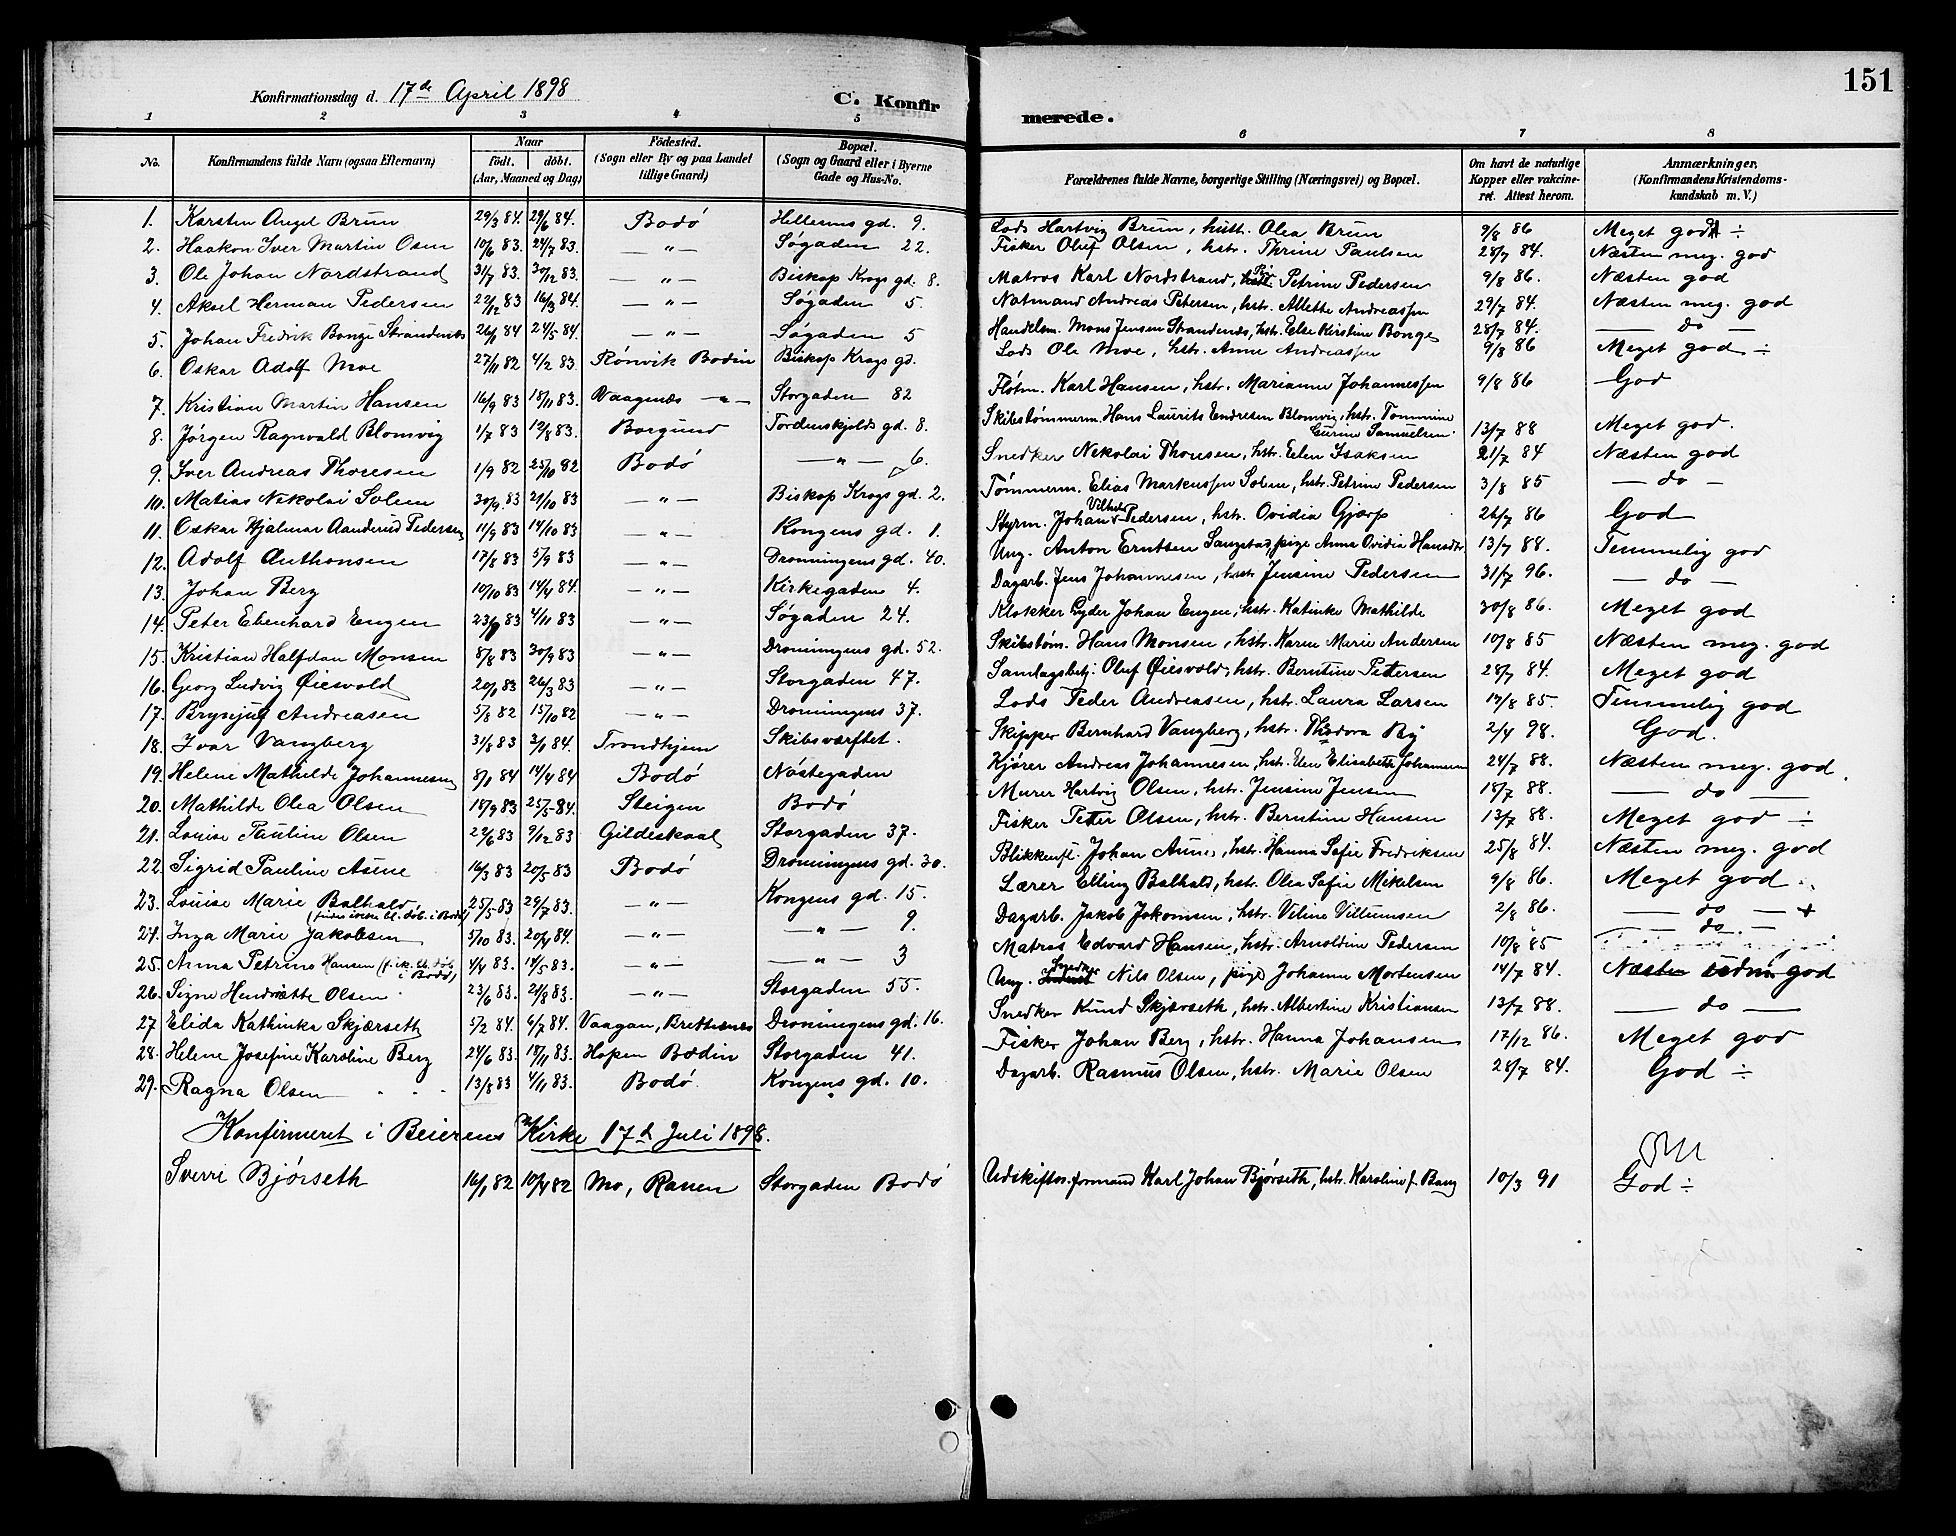 151
Konfirmationsdag d. 17de April 1898
C. Konfirmerede.
1 2 3 4 5 6 7 8
No. | Konfirmandens fulde Navn (ogsaa Efternavn) | Naar født. døbt. (Aar, Maaned og Dag) | Födested. (Sogn eller By og paa Landet tillige Gaard) | Bopæl. (Sogn og Gaard eller i Byerne Gade og Hus-No. | Forældrenes fulde Navne, borgerlige Stilling (Næringsvei) og Bopæl. | Om havt de naturlige Kopper eller vakcineret. Attest herom. | Anmærkninger, (Konfirmandens Kristendomskundskab m. V.)
1. Karsten Angel Brun 29/3 84. 29/6 84. Bodó Hellesens gd. 9. Lods Hartvig Brun, hust. Olea Brun 9/8 86 Meget god ÷
2. Haakon Iver Martin Osen 10/6 83. 24/7 83. — " — Søgaden 22. Fisker Oluf Olsen, hstr. Thrine Paulsen 28/7 84. Næsten meg. god
3. Ole Johan Nordstrand 31/7 83. 30/12 83. — " — Biskop Krogs gd. 8. Matros Karl Nordstrand, Petrine Pedersen 9/8 86. Næsten god
4. Aksel Herman Pedersen 22/12 83 16/3 84. — " — Søgaden 5. Natmand Andreas Petersen, hstr. Allette Andreassen 29/7 84. Næsten meg. god
5. Johan Fredrik Bonge Strandenæs 26/1 84 24/5 84. — " — Søgaden 5 Handelsm. Mons Jensen Strandenæs, hstr. Else Kirstine Bonge 28/7 84. — do —
6. Oskar Adolf Moe 27/11 82 4/2 83. Rönvik Bodin Biskop Krogs gd. Lods Ole Moe, hstr. Anne Andreassen 9/8 86 Meget god ÷
7. Kristian Martin Hansen 16/9 83 18/11 83. Vaagenæs — " — Storgaden 82 Fløtm. Karl Hansen, hstr. Marianne Johannessen 9/8 86 God
8. Jørgen Ragnvald Blomvig 1/7 83 12/8 83. Borgund Tordenskjolds gd. 8. Skibstømmerm. Hans Laurits Endresen Blomvig, hstr. Tommine Gurine Samuelsen 13/7 88 Meget god.
9. Iver Andreas Thoresen 1/9 82 25/10 82 Bodó — " — 6. Snedker Nekolai Thoresen, hstr. Elen Isaksen 21/7 84 Næsten god
10. Matias Nikolai Solem 30/9 83 21/10 83 — " — Biskop Krogs gd. 2. Tömmerm. Elias Markussen Solem, hstr. Petrine Pedersen 3/8 85 — do —
11. Oskar Hjalmar Aanderud Pedersen 11/9 83 14/10 83 — " — Kongens gd. 1. Styrm. Johan Vilhelm Pedersen, hstr. Ovidia Gjærp 26/7 86 God
12. Adolf Anthonsen 17/8 83 5/9 83 — " — Dronningens gd. 40. Ung. Anton Erntsen Langstad, pige Anna Ovidia Hansdtr 13/7 88. Temmelig god
13. Johan Berg 10/10 83 14/4 84. — " — Kirkegaden 4. Dagarb. Jens Johannesen, hstr. Jensine Pedersen 31/7 96. — do —
14. Peter Ebenhard Engen 23/9 83 4/11 83 — " — Søgaden 24. Klokker Gyder Johan Engen, hstr. Katinke Mathilde 30/8 86. Meget god
15. Kristian Halfdan Monsen 8/8 83 30/9 83 — " — Dronningens gd. 52. Skibstøm. Hans Monsen, hstr. Karen Marie Andersen 10/8 85 Næsten meg. god
16. Georg Ludvig Øiesvold 20/1 83 26/3 83 — " — Storgaden 47. Samlagsbetj. Oluf Øiesvold, hstr. Berntine Pettersen 28/7 84. Meget god
17. Brynjulf Andreasen 5/8 82 15/10 82 — " — Dronningens 37. Lods Peder Andreasen, hstr. Laura Larsen 14/8 85. Temmelig god
18. Ivar Vangberg 31/8 83 2/1 84. Trondhjem Skibsværftet. Skipper Bernhard Vangberg, hstr. Theodora By 2/4 98. God.
19. Helene Mathilde Johannesen 8/1 84 14/4 84 Bodó Nóstegaden Kjórer Andreas Johannesen, hstr. Elen Elisabeth Johannesen 24/7 88. Næsten meg. god.
20. Mathilde Olea Olsen 18/9 83 25/5 84. Steigen Bodó Murer Hartvig Olsen, hstr. Jensine Jensen 18/7 88. — do —
21. Louise Pauline Olsen 29/6 83 9/12 83 Gildeskaal Storgaden 37. Fisker Peter Olsen, hstr. Berntine Hansen 13/7 88. Meget god ÷
22. Sigrid Pauline Aune 16/3 83 20/5 83 Bodó Dronningens gd. 30. Blikkensl. Johan Aune, hstr. Hanna Sofie Fredriksen 25/8 84. Næsten meg. god
23. Louise Marie Balhald 25/5 83 29/7 83. — " — Kongens gd. 15. Lærer Elling Balhald, hstr. Olea Sofie Mikelsen 9/8 86. Meget god
(findes ikke bl. döb. i Bodó)
24. Inga Marie Jakobsen 5/10 83. 20/4 84. — " — — " — 9. Dagarb. Jakob Jakobsen, hstr. Veline Villumsen 2/8 86. — do — +
25. Anna Petrine Hansen (f. ik. bl. döb. i Bodó) 4/4 83. 14/5 83. — " — — " — 3 Matros Edvard Hansen, hstr. Arnoldine Pedersen 10/8 85 — do. —
26. Signe Hendriette Olsen 23/6 83. 21/8 83. — " — Storgaden 55. Ung. Snedker Nils Olsen, pige Johanne Mortensen 14/7 84. Næsten god
27 Elida Kathinka Skjærseth 5/2 84. 6/7 84. Vaagan, Brettesnes Dronningens gd. 16. Snedker Knud Skjærseth, hstr. Albertine Kristiansen 13/7 88. — do —
28. Helene Josefine Karoline Berg 24/6 83. 18/11 83. Hopen Bodin Storgaden 41. Fisker Johan Berg, hstr. Hanna Johansen 17/12 86. Meget god
29. Ragna Olsen 13/8 83 4/11 83. Bodó. Kongens gd. 10. Dagarb. Rasmus Olsen, hstr. Marie Olsen 28/7 84. God ÷
Konfirmeret i Beierens Kirke 17de Juli 1898.
Sverre Bjørseth 16/1 82 10/4 82 Mo, Ranen Storgaden Bodó Udskiftn. formand Karl Johan Bjørseth, hstr. Karoline f. Bang 10/3 91 God ÷